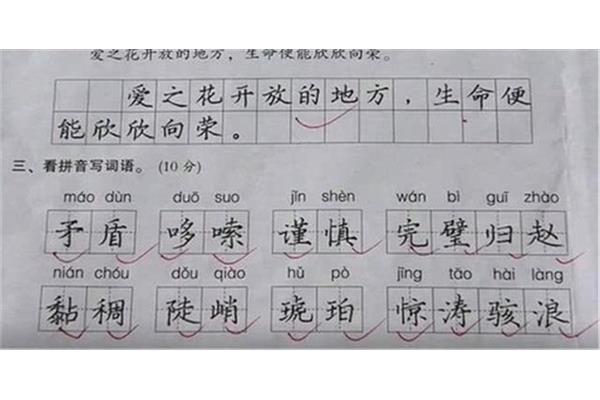 爱之花开放的地方，生命便能欣欣向荣。
爱之花开放的地方，生命便
能欣欣向荣。
三、看拼音写词语。(10分)
máo dùn duō suo jǐn shèn wán bì guī zhào
矛盾 哆嗦 谨慎 完璧归赵
nián chóu dǒu qiào hǔ pò jīng tāo hài làng
黏稠 陡峭 琥珀 惊涛骇浪